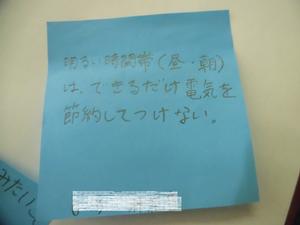 明るい時間帯(昼・朝)
は、できるだけ電気を
節約してつけない。
みたいに